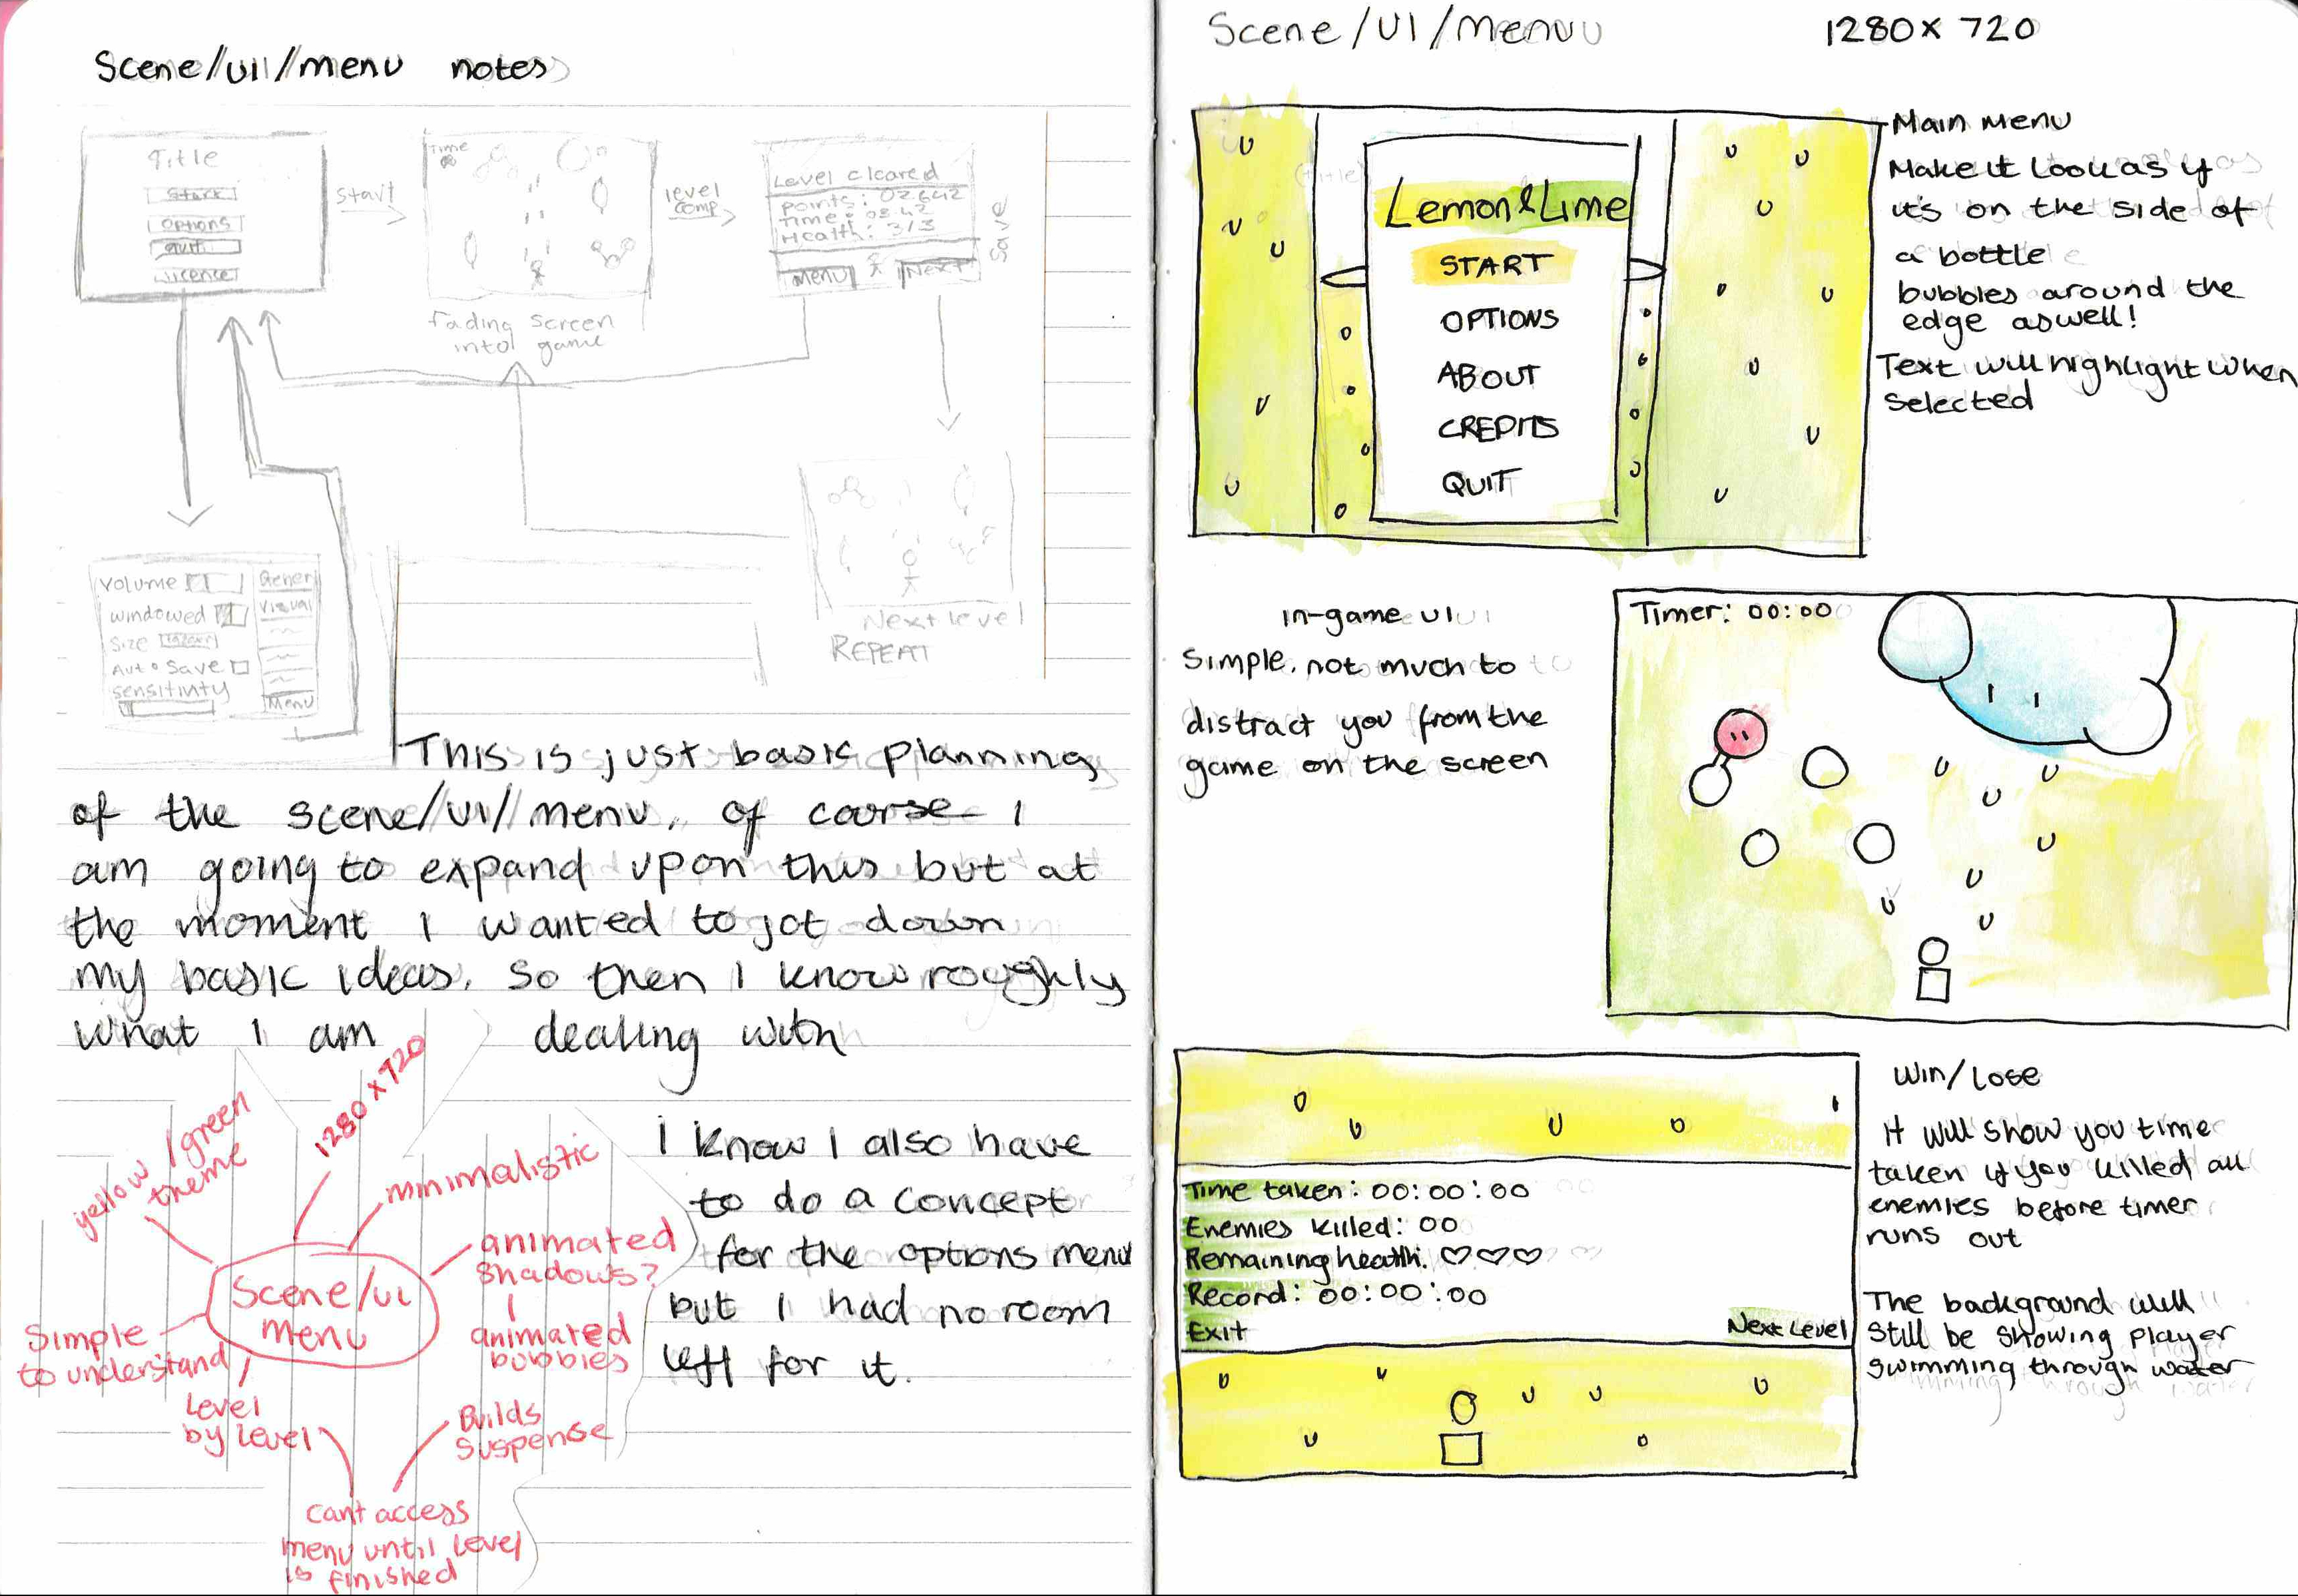 Scene/UI/menu notes
Title
Start
Options
Quit
Licence
start
Time
fading screen
into game
level
comp
Level cleared
points: 02642
Time: 03:42
Health: 3/3
Menu
Next
Save
Volume
windowed
Size
Auto Save
sensitivity
Gener
Visual
Menu
Next level
REPEAT
This is just basic planning
of the scene/UI/menu. of course I
am going to expand upon this but at
the moment I wanted to jot down
my basic ideas. So then I know roughly
what I am dealing with
yellow/green
theme
1280 x 720
minimalistic
animated
shadows?
animated
bubbles
Scene/UI
menu
Simple
to understand
Level
by level
Builds
suspense
cant access
menu until level
is finished
I know I also have
to do a concept
for the options menu
but I had no room
left for it.
Scene/UI/menu
1280x720
Lemon&Lime
START
OPTIONS
ABOUT
CREDITS
QUIT
Main menu
Make it look as if
it's on the side of
a bottle
bubbles around the
edge aswell!
Text will highlight when
selected
in-game UI
Simple. not much to
distract you from the
game on the screen
Timer: 00:00
Time taken: 00:00:00
Enemies killed: 00
Remaining health: ♡♡♡
Record: 00:00:00
Exit
Next Level
Win/Lose
It will show you time
taken if you killed all
enemies before timer
runs out
The background will
still be showing player
swimming through water